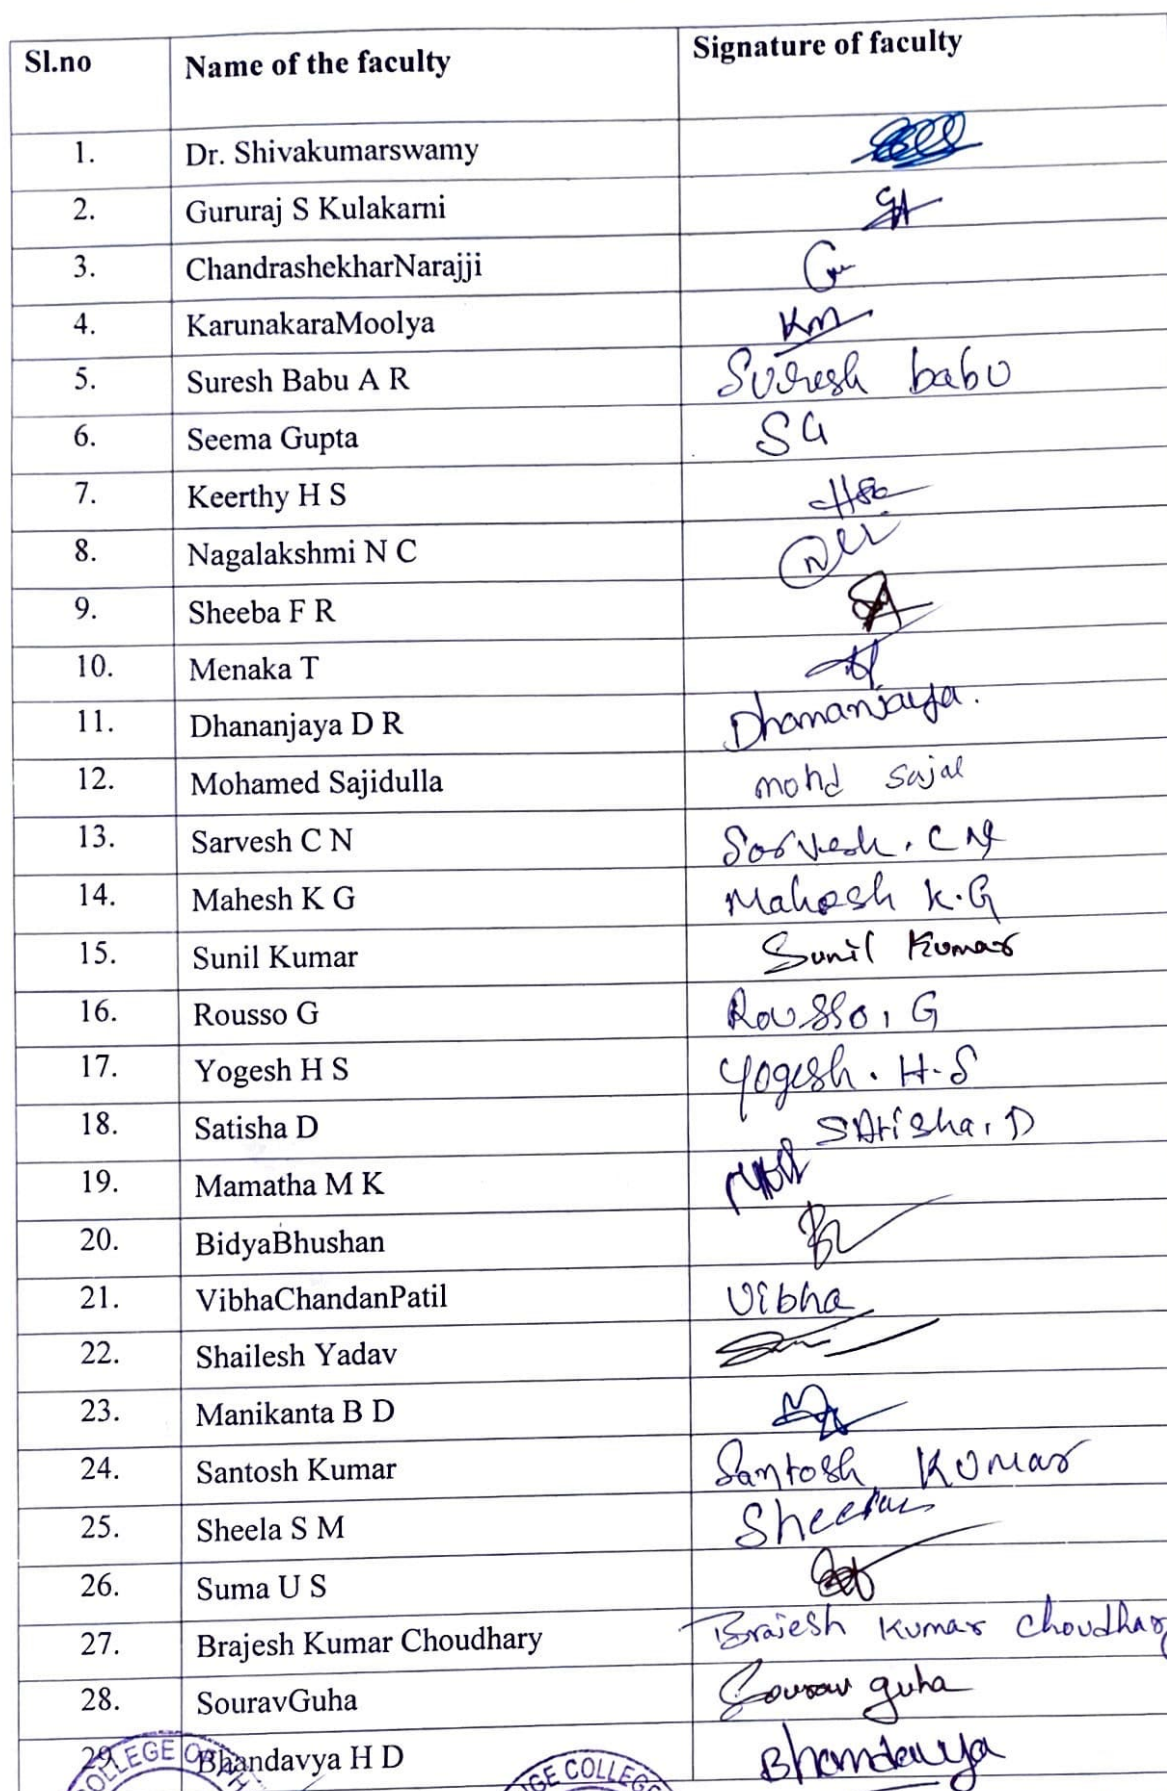 Sl.no Name of the faculty Signature of faculty
1. Dr. Shivakumarswamy
2. Gururaj S Kulakarni
3. ChandrashekharNarajji
4. KarunakaraMoolya Km
5. Suresh Babu A R Suresh babu
6. Seema Gupta SG
7. Keerthy H S
8. Nagalakshmi N C
9. Sheeba F R
10. Menaka T
11. Dhananjaya D R Dhananjaya.
12. Mohamed Sajidulla mohd sajal
13. Sarvesh C N Sarvesh. C N
14. Mahesh K G Mahesh K.G
15. Sunil Kumar Sunil Kumar
16. Rousso G Rousso, G
17. Yogesh H S Yogesh. H.S
18. Satisha D SAtisha, D
19. Mamatha M K
20. BidyaBhushan
21. VibhaChandanPatil Vibha
22. Shailesh Yadav
23. Manikanta B D
24. Santosh Kumar Santosh Kumar
25. Sheela S M Sheela
26. Suma U S
27. Brajesh Kumar Choudhary Brajesh Kumar Choudhary
28. SouravGuha Sourav guha
29. Bhandavya H D Bhandavya
COLLEGE OF PH
GE COLLEGE